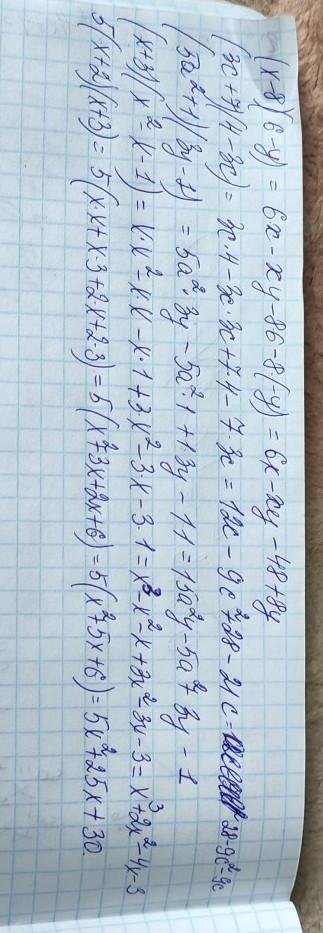 (x-8)(6-y) = 6x - xy - 8·6 - 8·(-y) = 6x - xy - 48 + 8y
(3c+7)(4-3c) = 3c·4 - 3c·3c + 7·4 - 7·3c = 12c - 9c² + 28 - 21c = 28 - 9c² - 9c
(5a²+1)(3y-1) = 5a²·3y - 5a²·1 + 1·3y - 1·1 = 15a²y - 5a² + 3y - 1
(x+3)(x²-x-1) = x·x² - x·x - x·1 + 3·x² - 3x - 3·1 = x³ - x² - x + 3x² - 3x - 3 = x³ + 2x² - 4x - 3
5(x+2)(x+3) = 5(x·x + x·3 + 2·x + 2·3) = 5(x² + 3x + 2x + 6) = 5(x² + 5x + 6) = 5x² + 25x + 30.